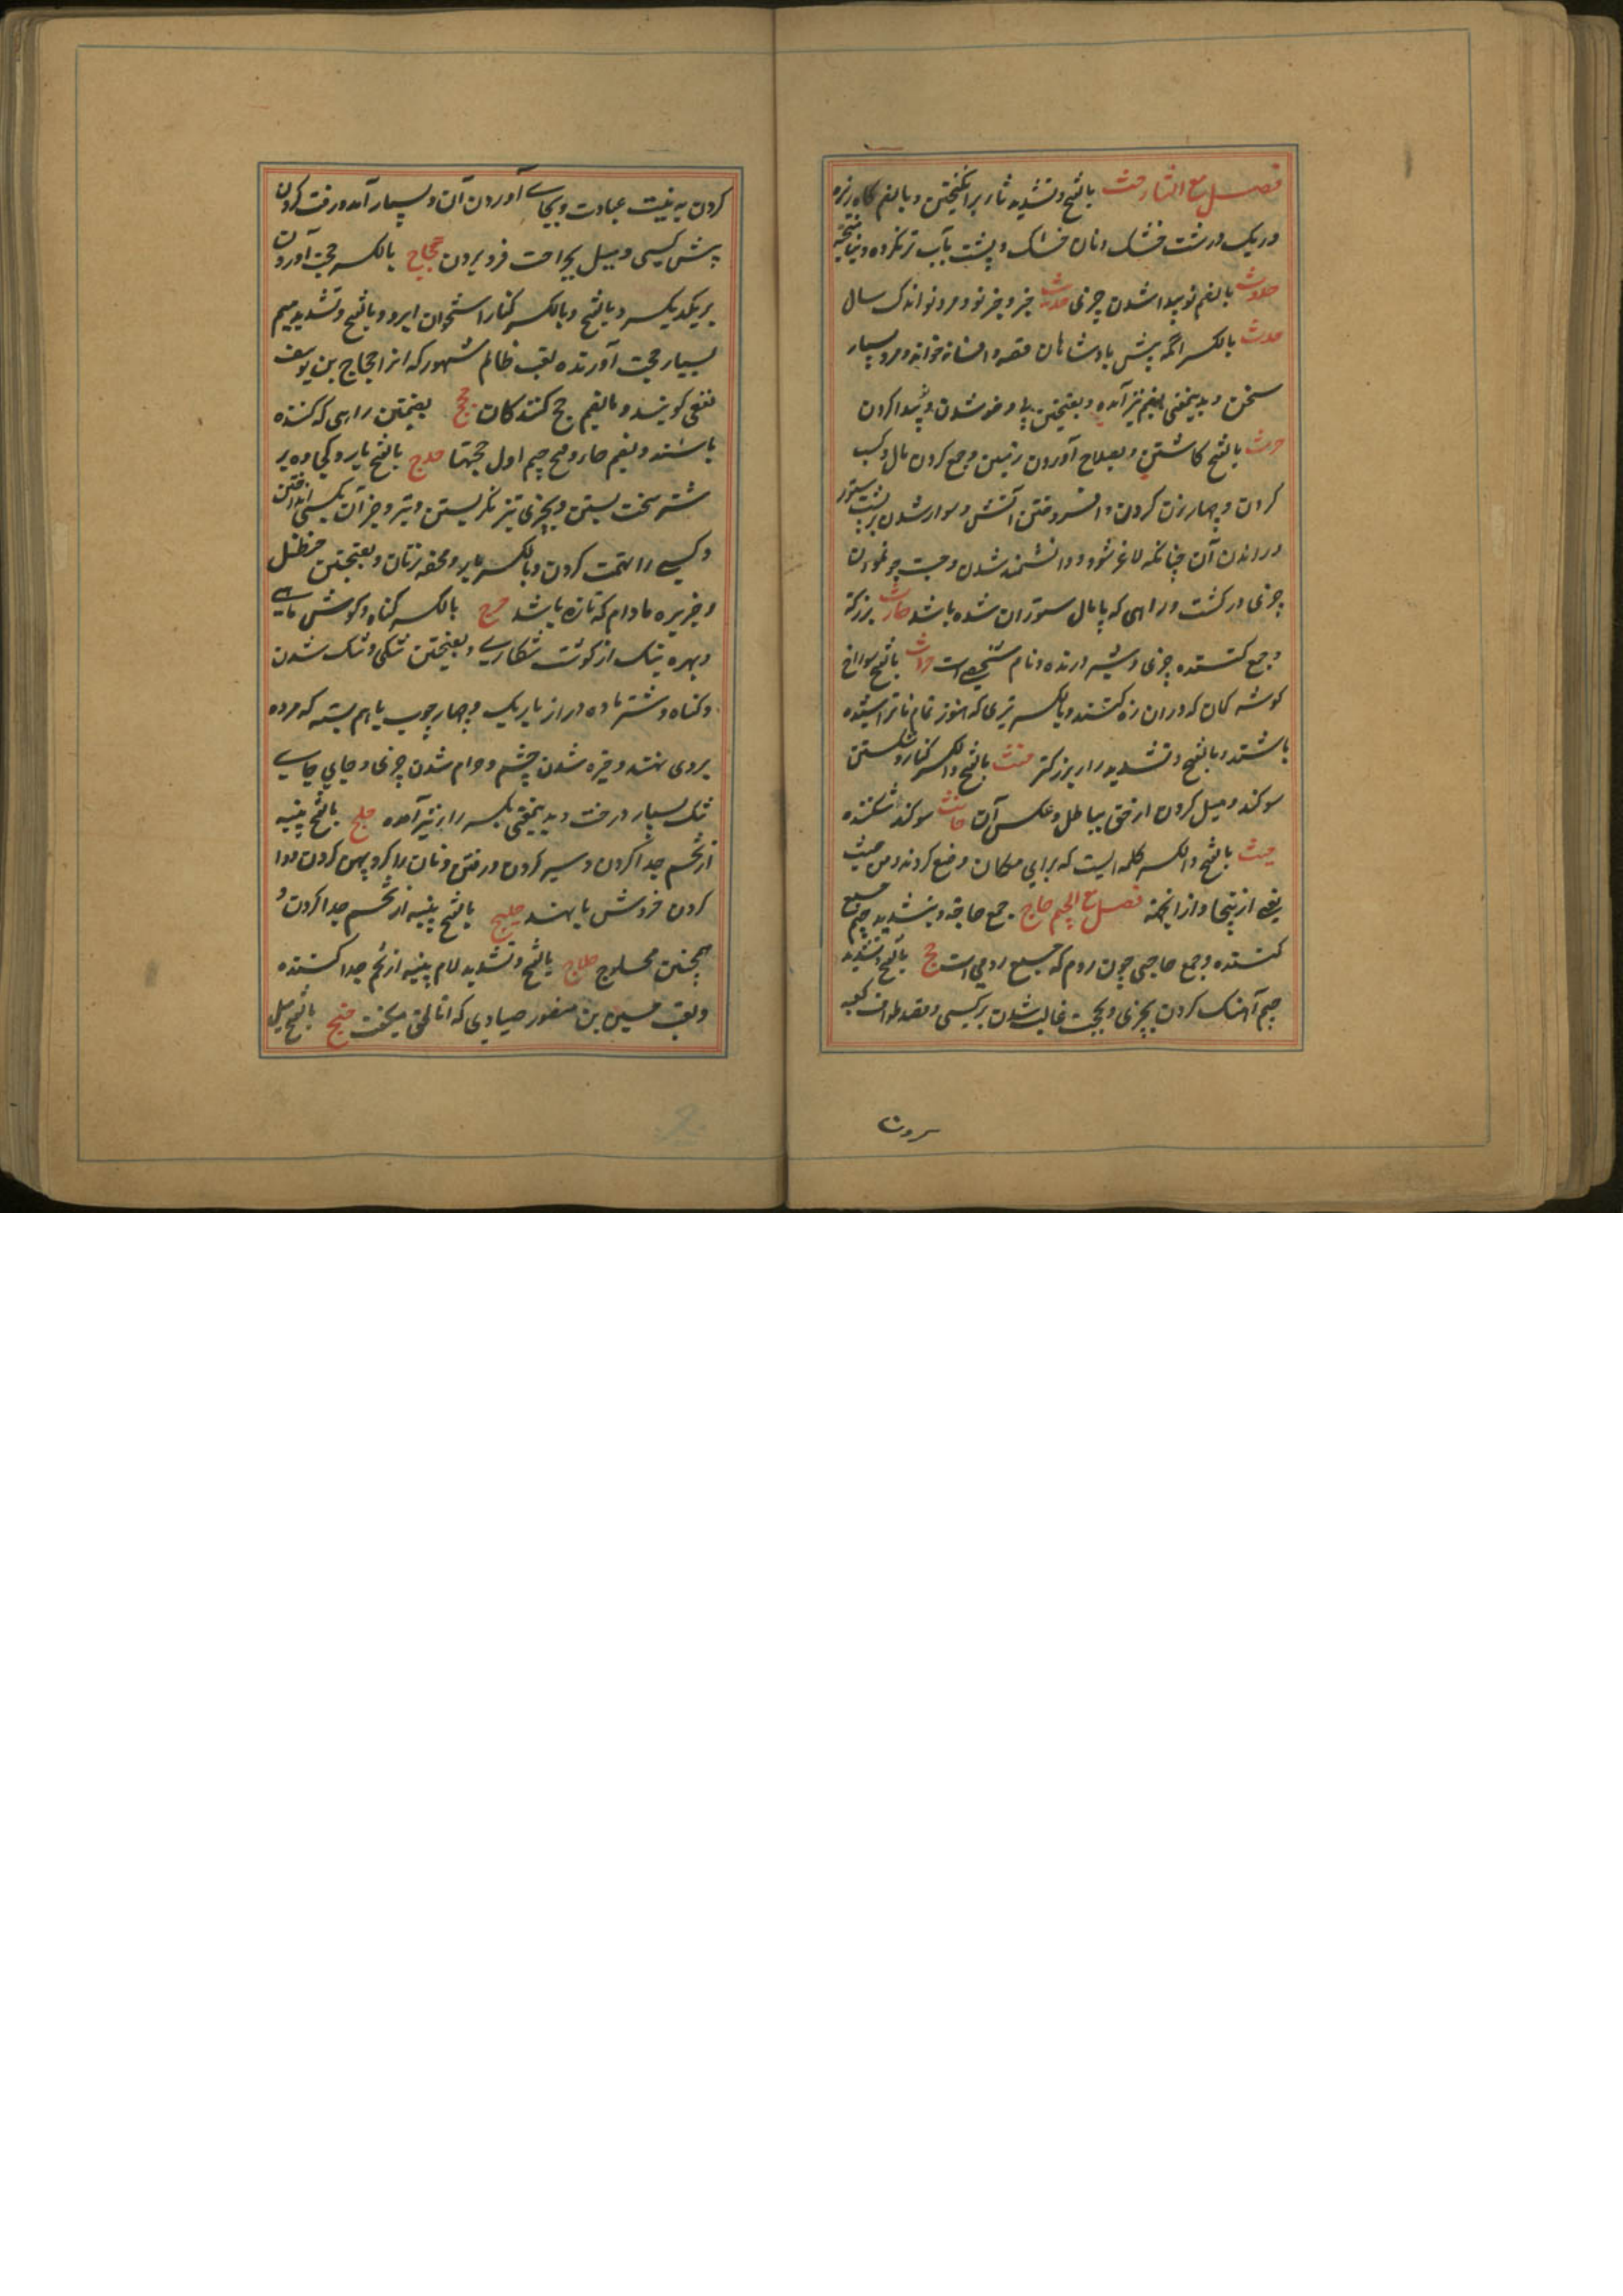 فصل مع الثاء حث بالفتح و تشدید ثاء بر انگیختن و بالضم کاه ریزه
و ریک درشت خشک و نان خشک و پشت بآب تر نکرده و نیامیخته
حدوث بالضم نو پیدا شدن چیزی حدیث خبر و چیز نو و مرد نو اندک سال
حدث بالکسر انکه پیش پادشاهان قصه و افسانه خواند و مرد بسیار
سخن و بدینمعنی بضم نیز آمده و بفتحتین بی وضو شدن و پیدا کردن
حرث بالفتح کاشتن و بصلاح آوردن زمین و جمع کردن مال و کسب
کردن و چهار زن کردن و افروختن آتش و سوار شدن بر پشت ستور
و راندن آن چنانکه لاغر شود و دانشمند شدن و جست و جو نمودن
چیزی و کشت و راهی که پامال ستوران شده باشد حارث برزکر
و جمع کننده چیزی و شیر درنده و نام شخصی است حراث بالفتح سوراخ
کوشه کمان که در ان زه کنند و بالکسر تیری که هنوز تمام ناتراشیده
باشند و بالفتح و تشدید را برزکر حنث بالفتح و الکسر کناه و شکستن
سوکند و میل کردن از حق بباطل و عکس آن حانث سوکند شکننده
حیث بالفتح و الکسر کلمه ایست که برای مکان وضع کردند و من حیث
یعنی از ینجا و از انجهة فصل مع الجیم حاج جمع حاجه و بتشدید جیم حج
کننده و جمع حاجی چون روم که جمع رومی است حج بالفتح و تشدید
جیم آهنک کردن بچیزی و بحجت غالب شدن بر کسی و قصد طواف کعبه
کردن به نیت عبادت و بجای آوردن آن و بسیار آمد و رفت کردن
پیش کسی و میل بجراحت فرو بردن حجاج بالکسر حجت آوردن
بر یکدیکر و بالفتح و بالکسر کنار استخوان ابرو و بالفتح و تشدید جیم
بسیار حجت آورنده لقب ظالم مشهور که انرا حجاج بن یوسف
ثقفی کویند و بالضم حج کنندکان حجج بضمتین راهی که کنده
باشند و بضم حاء و فتح جیم اول حجتها حدج بالفتح بار و کجاوه بر
شتر سخت بستن و بچیزی تیز نکریستن و تیر و جز آن بکسی انداختن
و کسی را تهمت کردن و بالکسر بار و محفه زنان و بفتحتین حنظل
و خربزه مادام که تازه باشد حرج بالکسر کناه و کوش ماهی
و بهره سک از کوشت شکاری و بفتحتین تنکی و تنک شدن
و کناه و شتر ماده دراز باریک و چهار چوب باهم بسته که مرده
بروی نهند و خیره شدن چشم و حرام شدن چیزی و جای
تنک بسیار درخت و بدینمعنی بکسر را نیز آمده حلج بالفتح پنبه
از تخم جدا کردن و سیر کردن و رفتن و نان را کرد و پهن کردن و دوا
کردن خروش با یهند حلیج بالفتح پنبه از تخم جدا کردن و
همچنین محلوج حلاج بالفتح و تشدید لام پنبه از تخم جدا کننده
و لقب حسین بن منصور صیادی که انا الحق میکفت حنج بالفتح میل